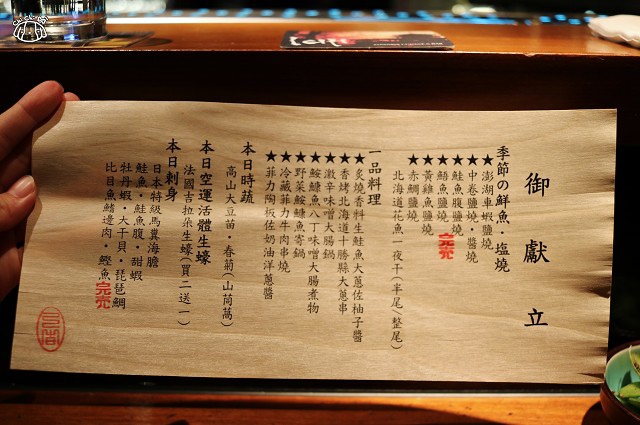 御獻立
季節の鮮魚・塩燒
★澎湖車蝦鹽燒
★中卷鹽燒・醬燒
★鮭魚腹鹽燒
★鮞魚鹽燒 完売
★黃雞魚鹽燒
★赤鯛鹽燒
北海道花魚一夜干(半尾/整尾)
一品料理
★炙燒香料生鮭魚大蔥佐柚子醬
★香烤北海道十勝縣大蔥串
★激辛味噌大腸鍋
★鮟鱇魚八丁味噌大腸煮物
★野菜鮟鱇魚寄鍋
★冷藏菲力牛肉串燒
★菲力陶板佐奶油洋蔥醬
本日時蔬
高山大豆苗・春菊(山茼萵)
本日空運活體生蠔
法國吉拉朵生蠔(買二送一)
本日刺身
日本特級馬糞海膽
鮭魚・鮭魚腹・甜蝦
牡丹蝦・大干貝・琵琶鯛
比目魚鰭邊肉・鰹魚 完売